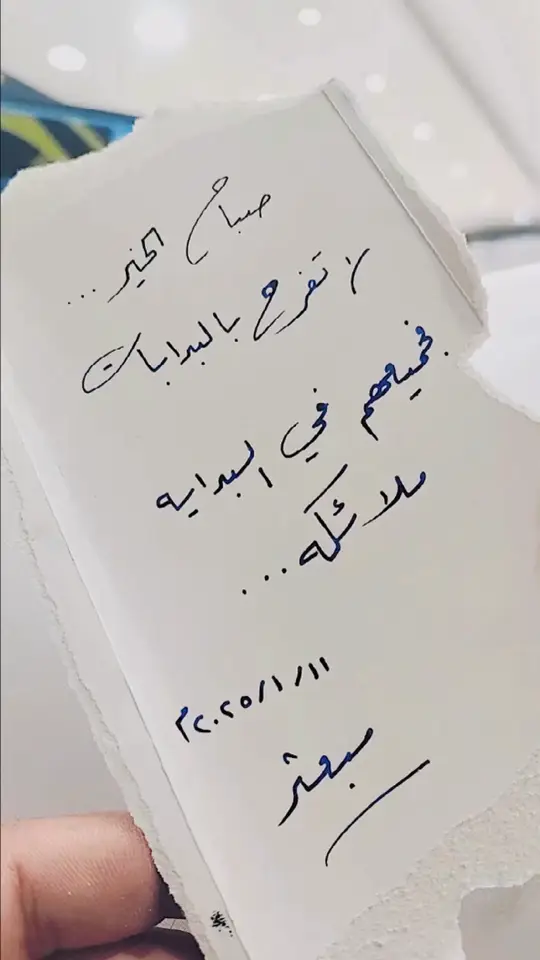 صباح الخير...
لا تفرح بالبدايات
فجميعهم في البدايه
ملائكه...
١١/١/٢٠٢٥م
مبعثر